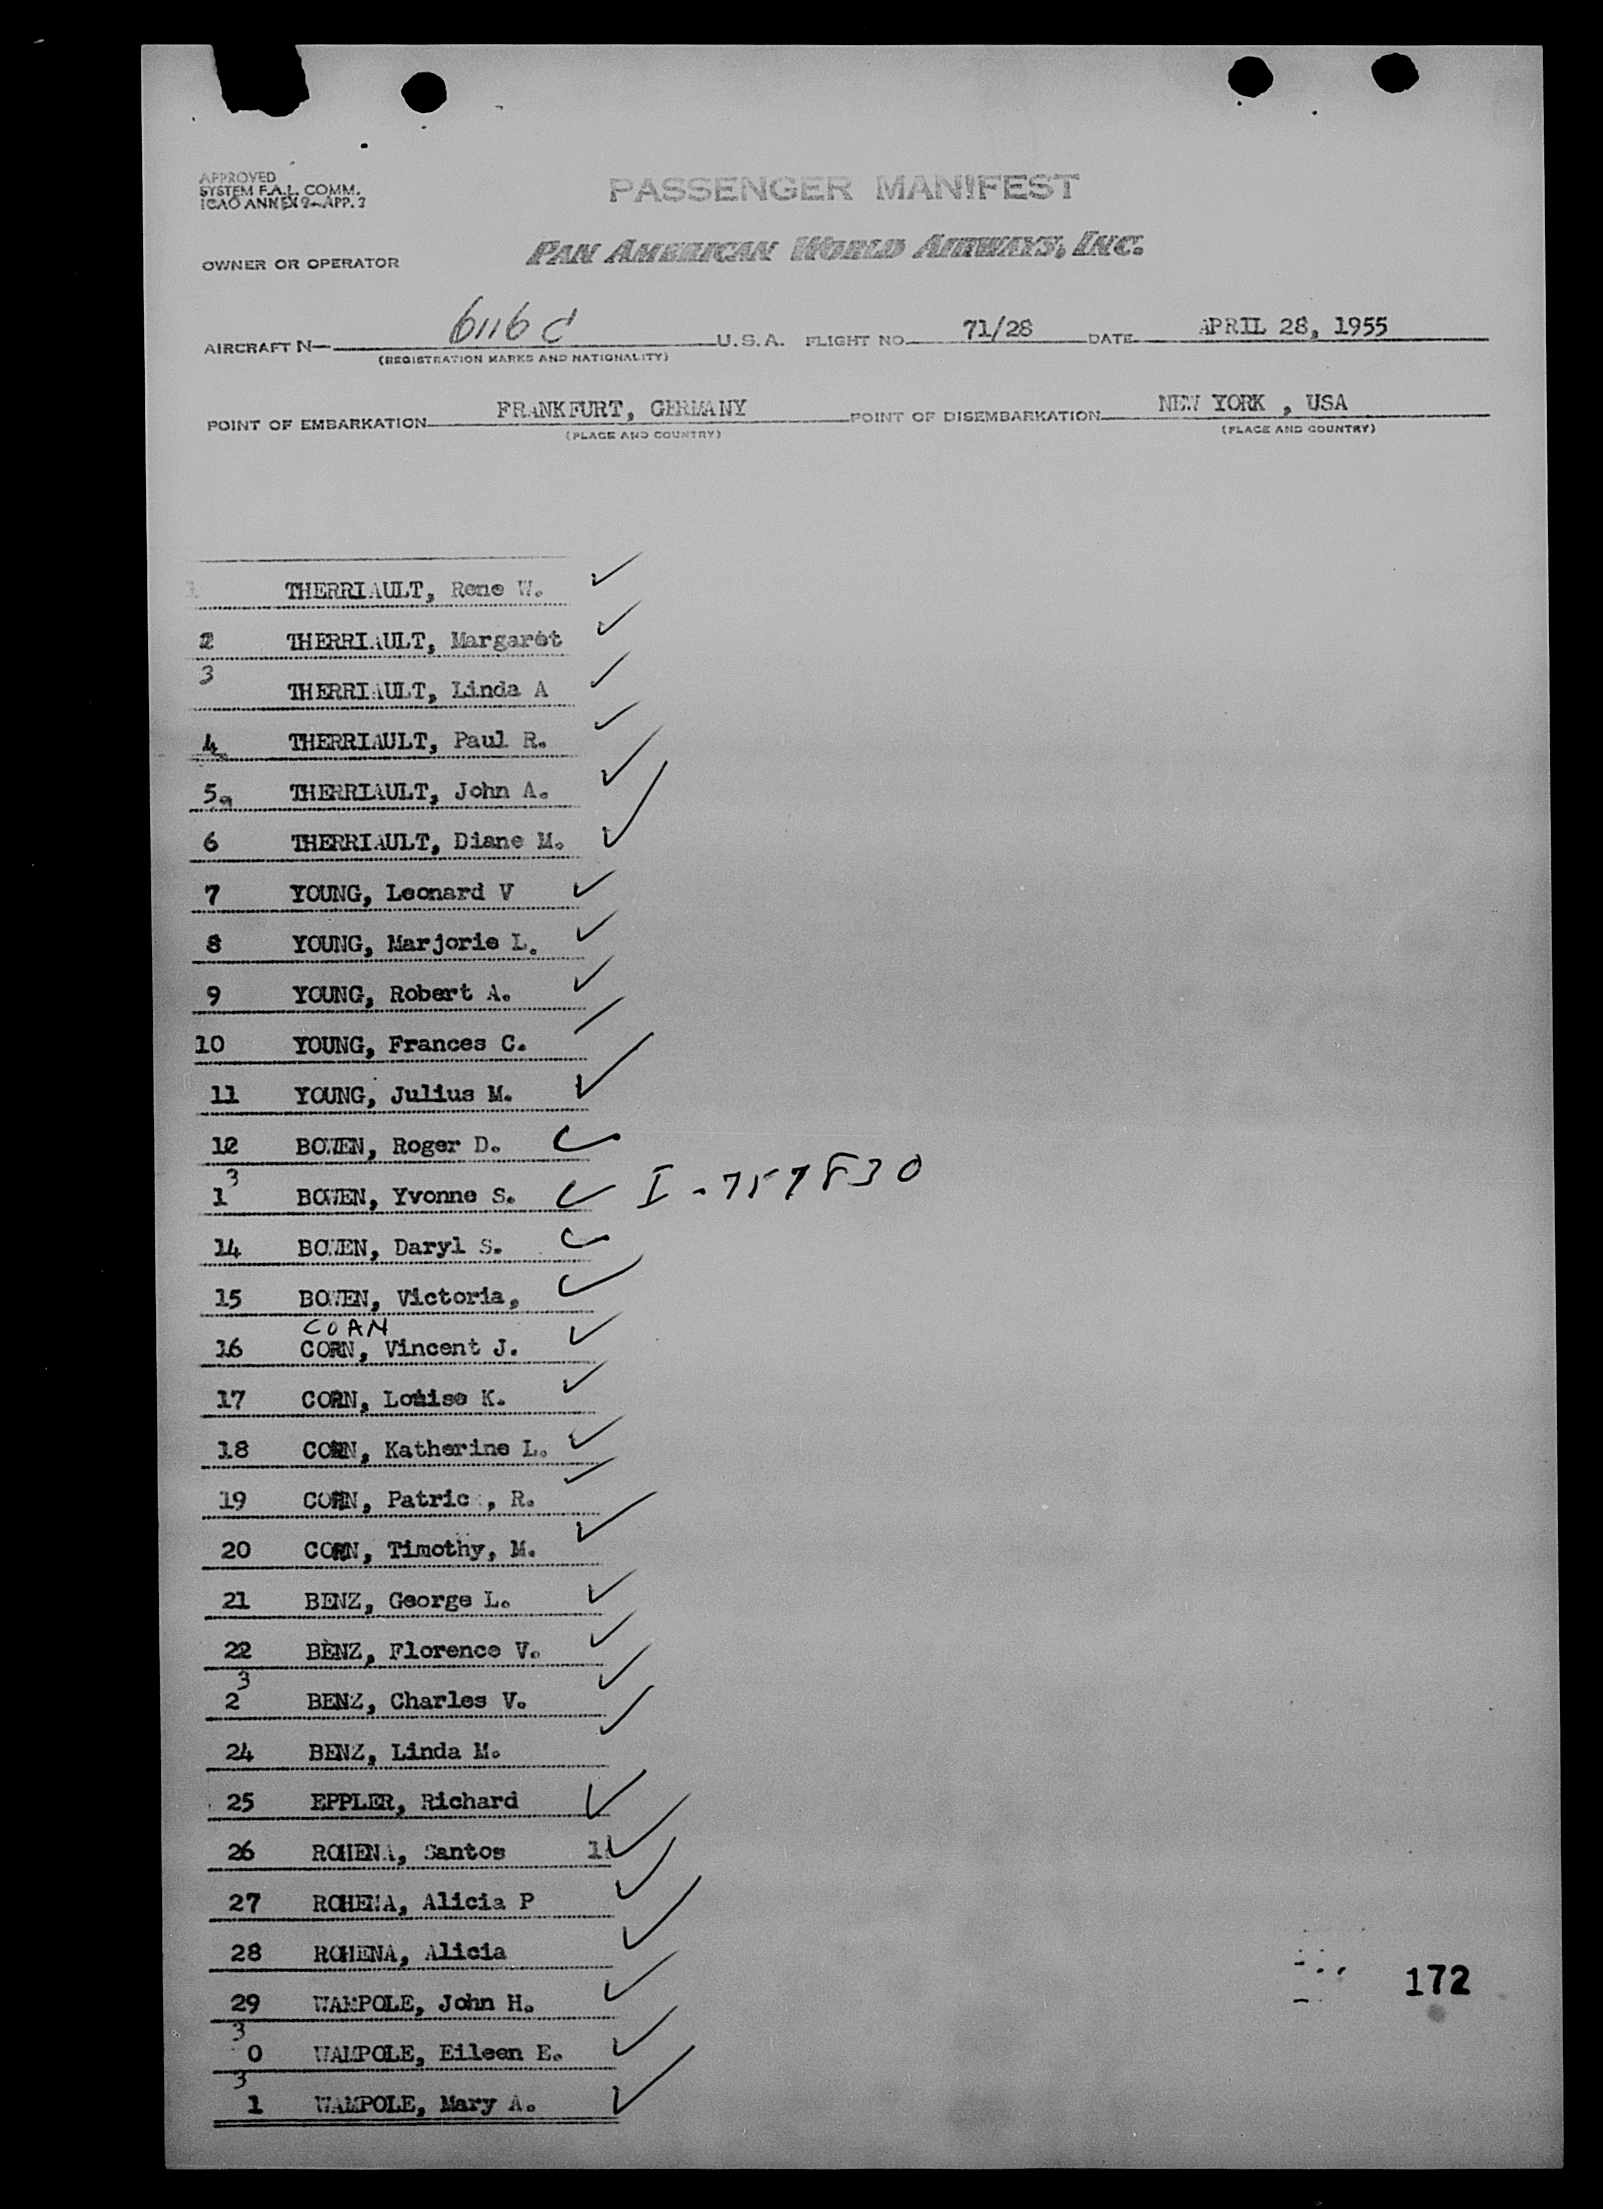 APPROVED
SYSTEM F.A.L. COMM.
ICAO ANNEX 9-APP. 3
PASSENGER MANIFEST
OWNER OR OPERATOR PAN AMERICAN WORLD AIRWAYS, INC.
AIRCRAFT N- 6116 C U.S.A. FLIGHT NO. 71/28 DATE APRIL 28, 1955
(REGISTRATION MARKS AND NATIONALITY)
POINT OF EMBARKATION FRANKFURT, GERMANY POINT OF DISEMBARKATION NEW YORK , USA
(PLACE AND COUNTRY) (PLACE AND COUNTRY)
1 THERRIAULT, Rene W.
2 THERRIAULT, Margaret
3 THERRIAULT, Linda A
4 THERRIAULT, Paul R.
5 THERRIAULT, John A.
6 THERRIAULT, Diane M.
7 YOUNG, Leonard V
8 YOUNG, Marjorie L.
9 YOUNG, Robert A.
10 YOUNG, Frances C.
11 YOUNG, Julius M.
12 BOWEN, Roger D.
13 BOWEN, Yvonne S. I-757830
14 BOWEN, Daryl S.
15 BOWEN, Victoria,
COAN
16 CORN, Vincent J.
17 CORN, Louise K.
18 CORN, Katherine L.
19 CORN, Patric , R.
20 CORN, Timothy, M.
21 BENZ, George L.
22 BENZ, Florence V.
23 BENZ, Charles V.
24 BENZ, Linda M.
25 EPPLER, Richard
26 ROHENA, Santos
27 ROHENA, Alicia P
28 ROHENA, Alicia
29 WAMPOLE, John H.
30 WAMPOLE, Eileen E.
31 WAMPOLE, Mary A.
172